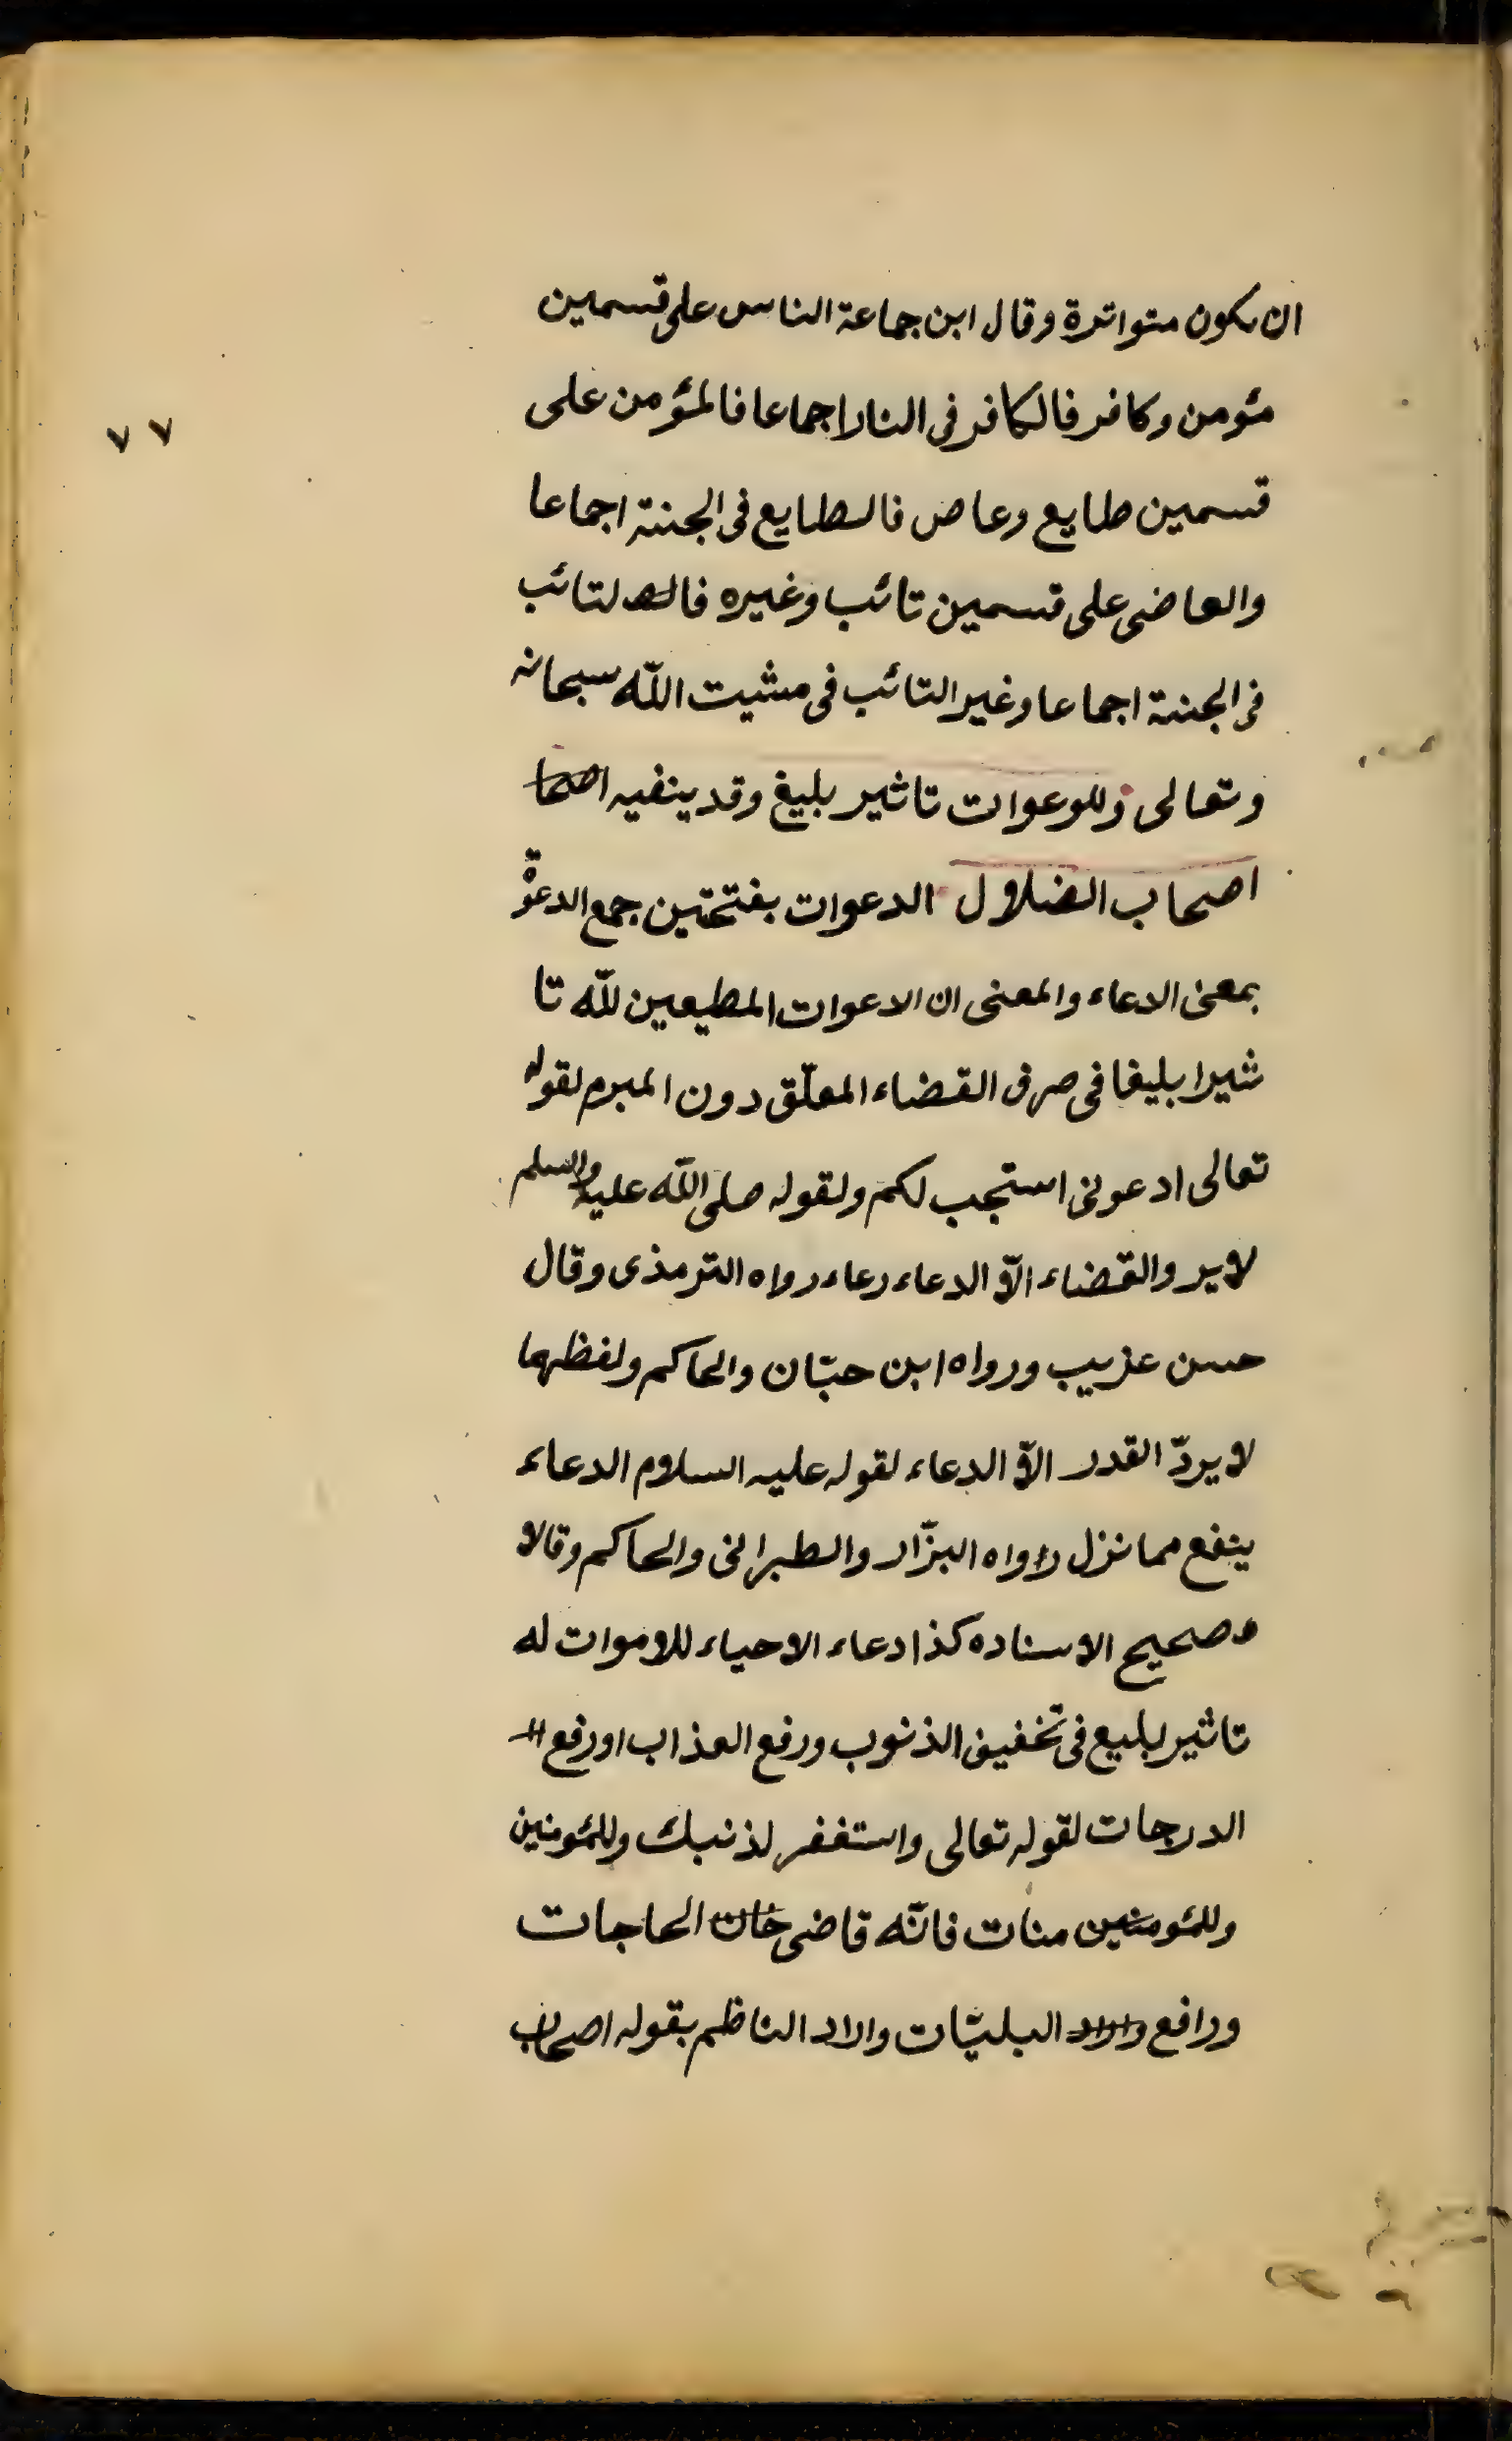 ان يكون متواترة وقال ابن جماعة الناس على قسمين
مئومن وكافر فالكافر فى النار اجماعا فالمئومن على
٧٧
قسمين طايع وعاص فالطايع فى الجنة اجماعا
والعاضى على قسمين تائب وغيره فالتائب
فى الجنة اجماعا وغير التائب فى مشيت اللّه سبحانه
وتعالى وللدعوات تاثير بليغ وقد ينفيه
اصحاب الضلال الدعوات بفتحتين جمع الدعوة
بمعنى الدعاء والمعنى ان الدعوات المطيعين للّه تا
ثيرا بليغا فى صرف القضاء المعلّق دون المبرم لقوله
تعالى ادعونى استجب لكم ولقوله صلى اللّه عليه والسلم
لا يرد القضاء الّا الدعاء دعاء رواه الترمذى وقال
حسن غريب ورواه ابن حبّان والحاكم ولفظهما
لا يردّ القدر الّا الدعاء لقوله عليه السلام الدعاء
ينفع مما نزل رواه البزّار والطبرانى والحاكم وقالا
صحيح الاسناد كذا دعاء الاحياء للاموات له
تاثير بليغ فى تخفيف الذنوب ورفع العذاب او رفع
الدرجات لقوله تعالى واستغفر لذنبك وللمئومنين
وللمئومنين منات فانّه قاضى خان الحاجات
ورافع البليّات واراد الناظم بقوله اصحاب